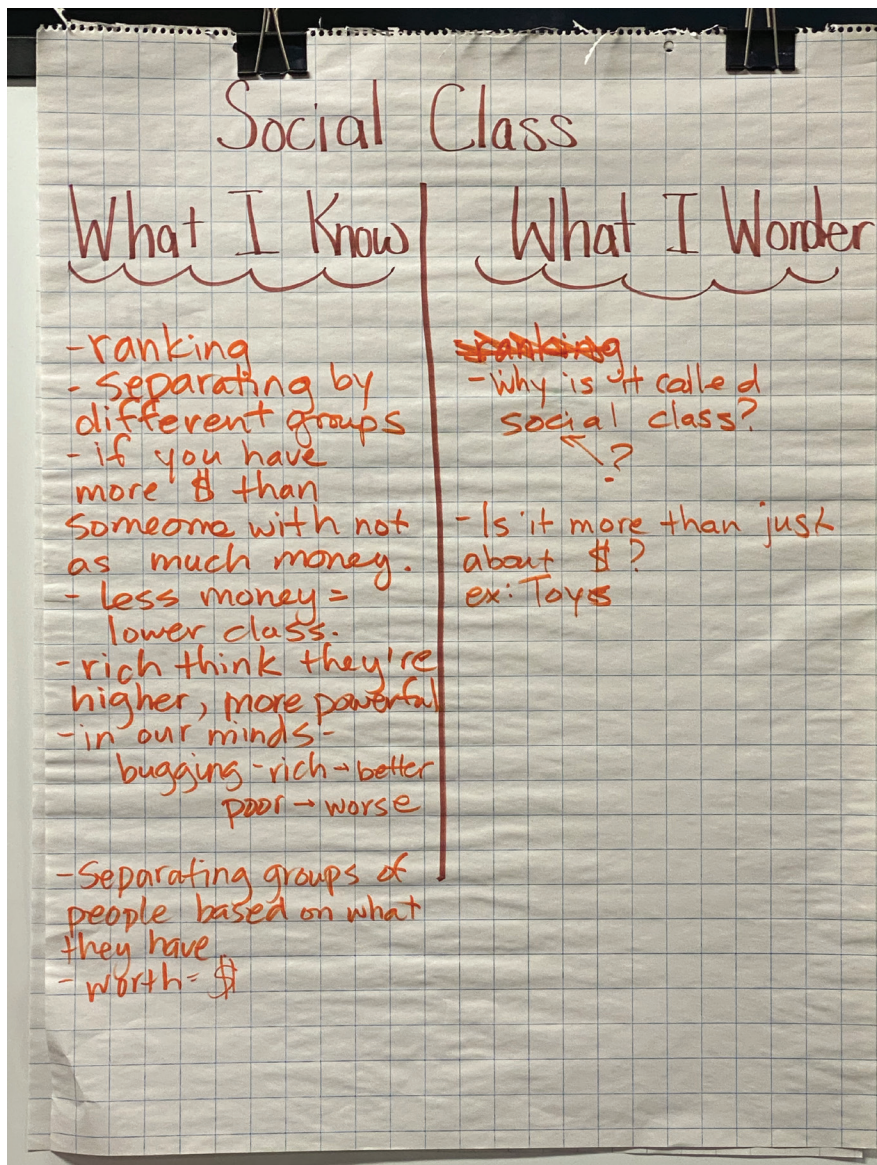 Social Class
What I Know
-ranking
- separating by
different groups
- if you have
more $ than
someone with not
as much money.
- less money =
lower class.
-rich think they're
higher, more powerful
-in our minds-
bugging -rich→better
poor→worse
-Separating groups of
people based on what
they have
- worth= $
What I Wonder
-ranking
-Why is it called
social class?
?
-Is it more than just
about $?
ex: Toys